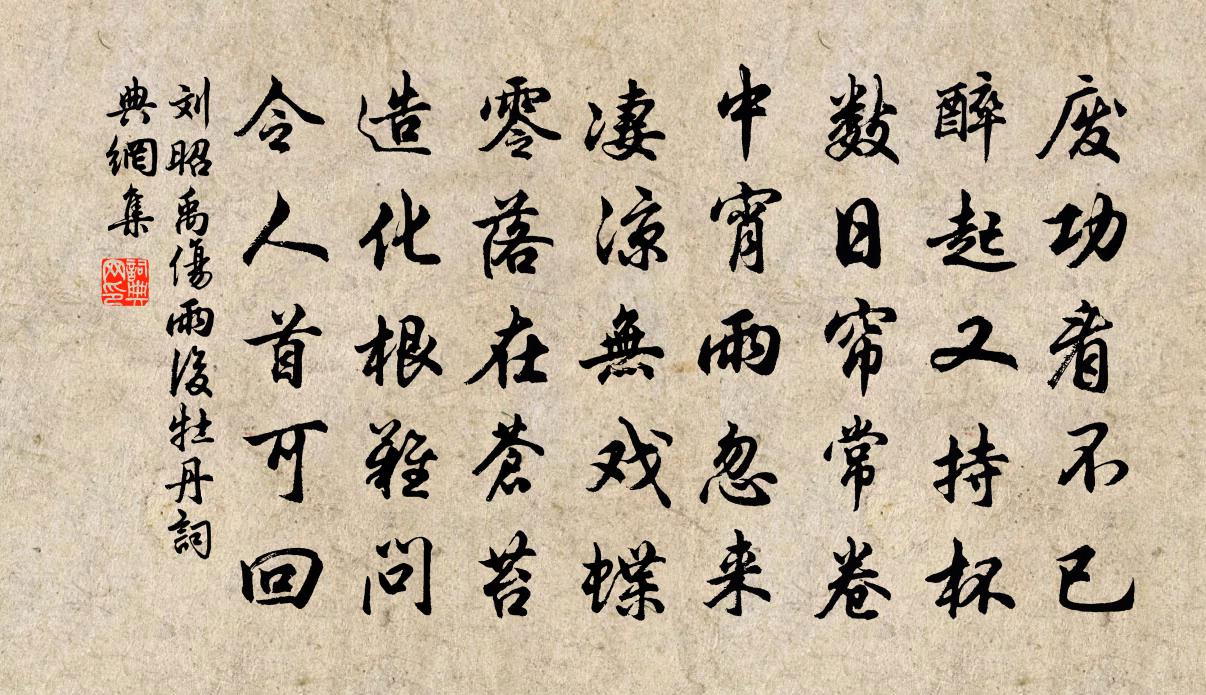 废功看不已
醉起又持杯
数日帘常卷
中宵雨忽来
凄凉無戏蝶
零落在蒼苔
造化根難问
令人首可回
刘昭禹傷雨後牡丹詞
典網集
詞典
网印